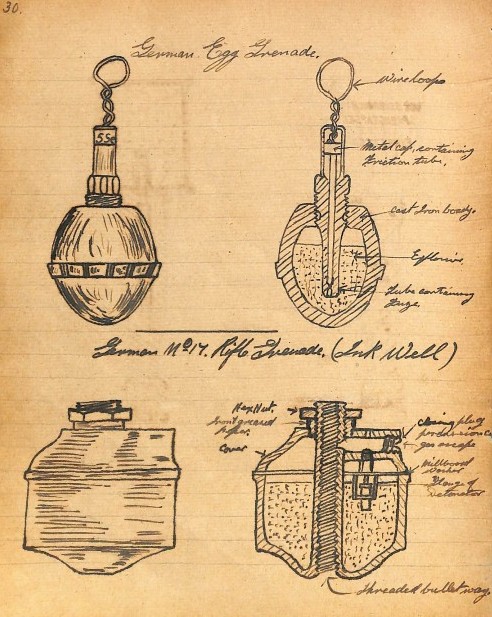 30.
German Egg Grenade.
Wire loops
5 Sec
Metal cap, containing
Friction tube.
Cast Iron body.
Explosive
Tube containing
Fuze.
German No 17. Rifle Grenade. (Ink Well)
Hex Nut.
Cover
Closing plug
gas escape
Millboard
Washer
Flange of
detonator
Threaded bullet way.